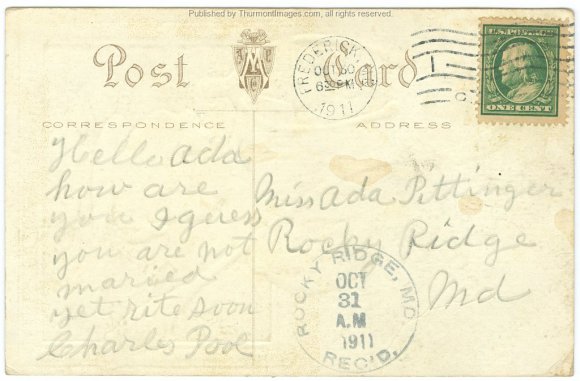 Published by ThurmontImages.com, all rights reserved.
Post Card
FREDERICK,
OCT 30
6 30 PM
1911
U.S. POSTAGE
ONE CENT
CORRESPONDENCE
ADDRESS
Hello ada
how are
you I guess
you are not
married
yet rite soon
Charles Pool
Miss Ada Pittinger
Rocky Ridge
Md
ROCKY RIDGE, MD
OCT
31
A.M
1911
REC'D.